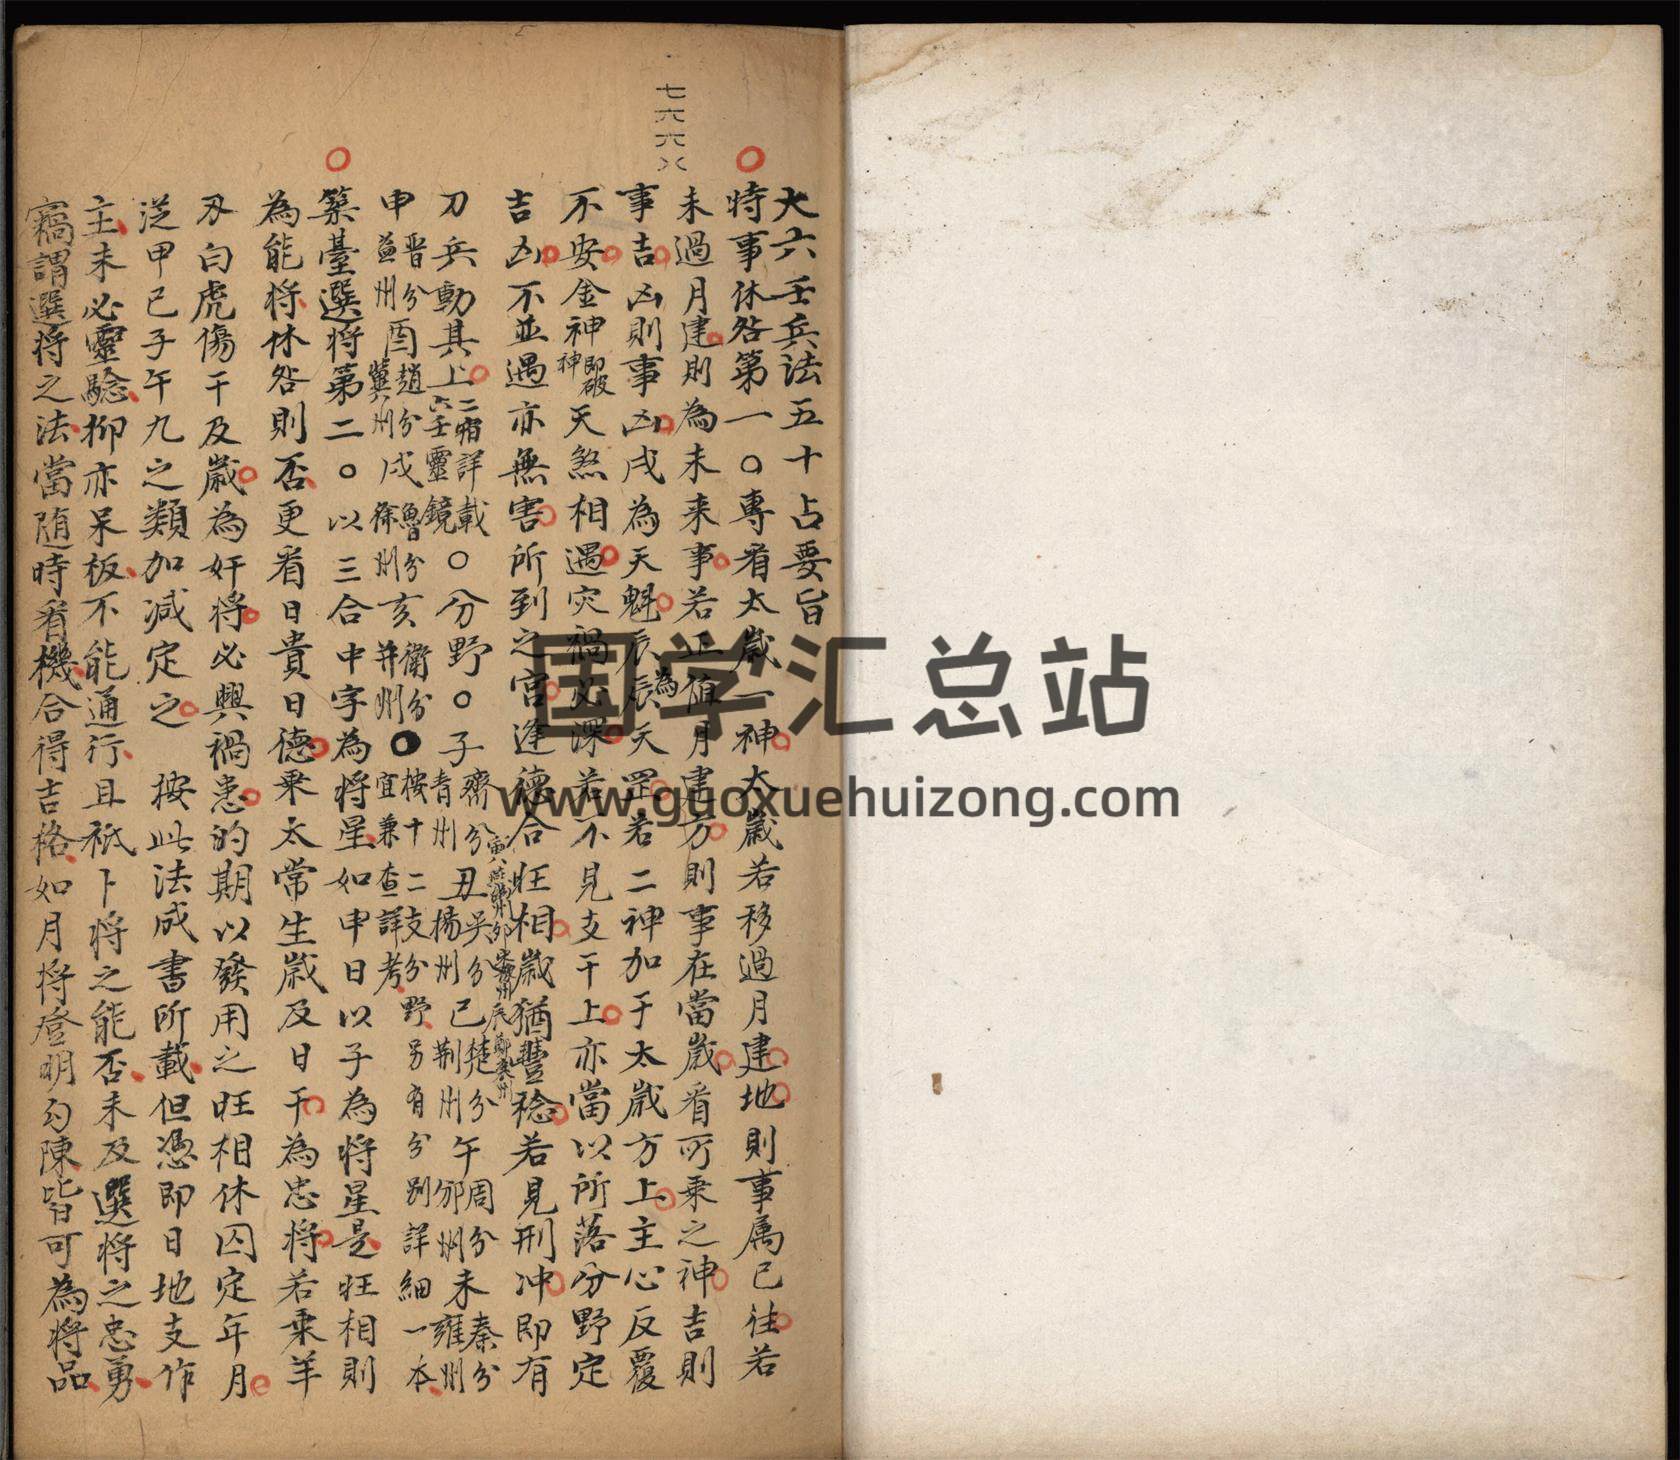 七六六〤
大六壬兵法五十占要旨
時事休咎第一〇專看太歲一神太歲若移過月建地則事属已往若
未過月建則為未来事若正值月建方則事在當歲看所乘之神吉則
事吉凶則事凶戌為天魁辰為天罡若二神加于太歲方上主心反覆
不安金神即破神天煞相遇灾禍必深若不見支干上亦當以所落分野定
吉凶不並遇亦無害所到之宮逢德合旺相歲猶豐稔若見刑冲即有
刀兵動其上二宿詳載六壬靈鏡〇分野〇子齊分青州丑吳分揚州寅燕分卯宋分辰鄭分兗州巳楚分荆州午周分邠州未秦分雍州
申晋分益州酉趙分冀州戌魯分徐州亥衛分并州●按十二支分野另有分别詳細一本宜兼查詳考
築臺選将第二〇以三合中字為将星如申日以子為将星是旺相則
為能将休咎則否更看日貴日德乘太常生歲及日干為忠将若乘羊
刃白虎傷干及歲為奸将必興禍患的期以發用之旺相休囚定年月
泛甲己子午九之類加减定之 按此法成書所載但憑即日地支作
主未必靈驗抑亦呆板不能通行且祇卜将之能否未及選将之忠勇
竊謂選将之法當随時看機合得吉格如月将登明勾陳皆可為将品
国学汇总站
www.guoxuehuizong.com